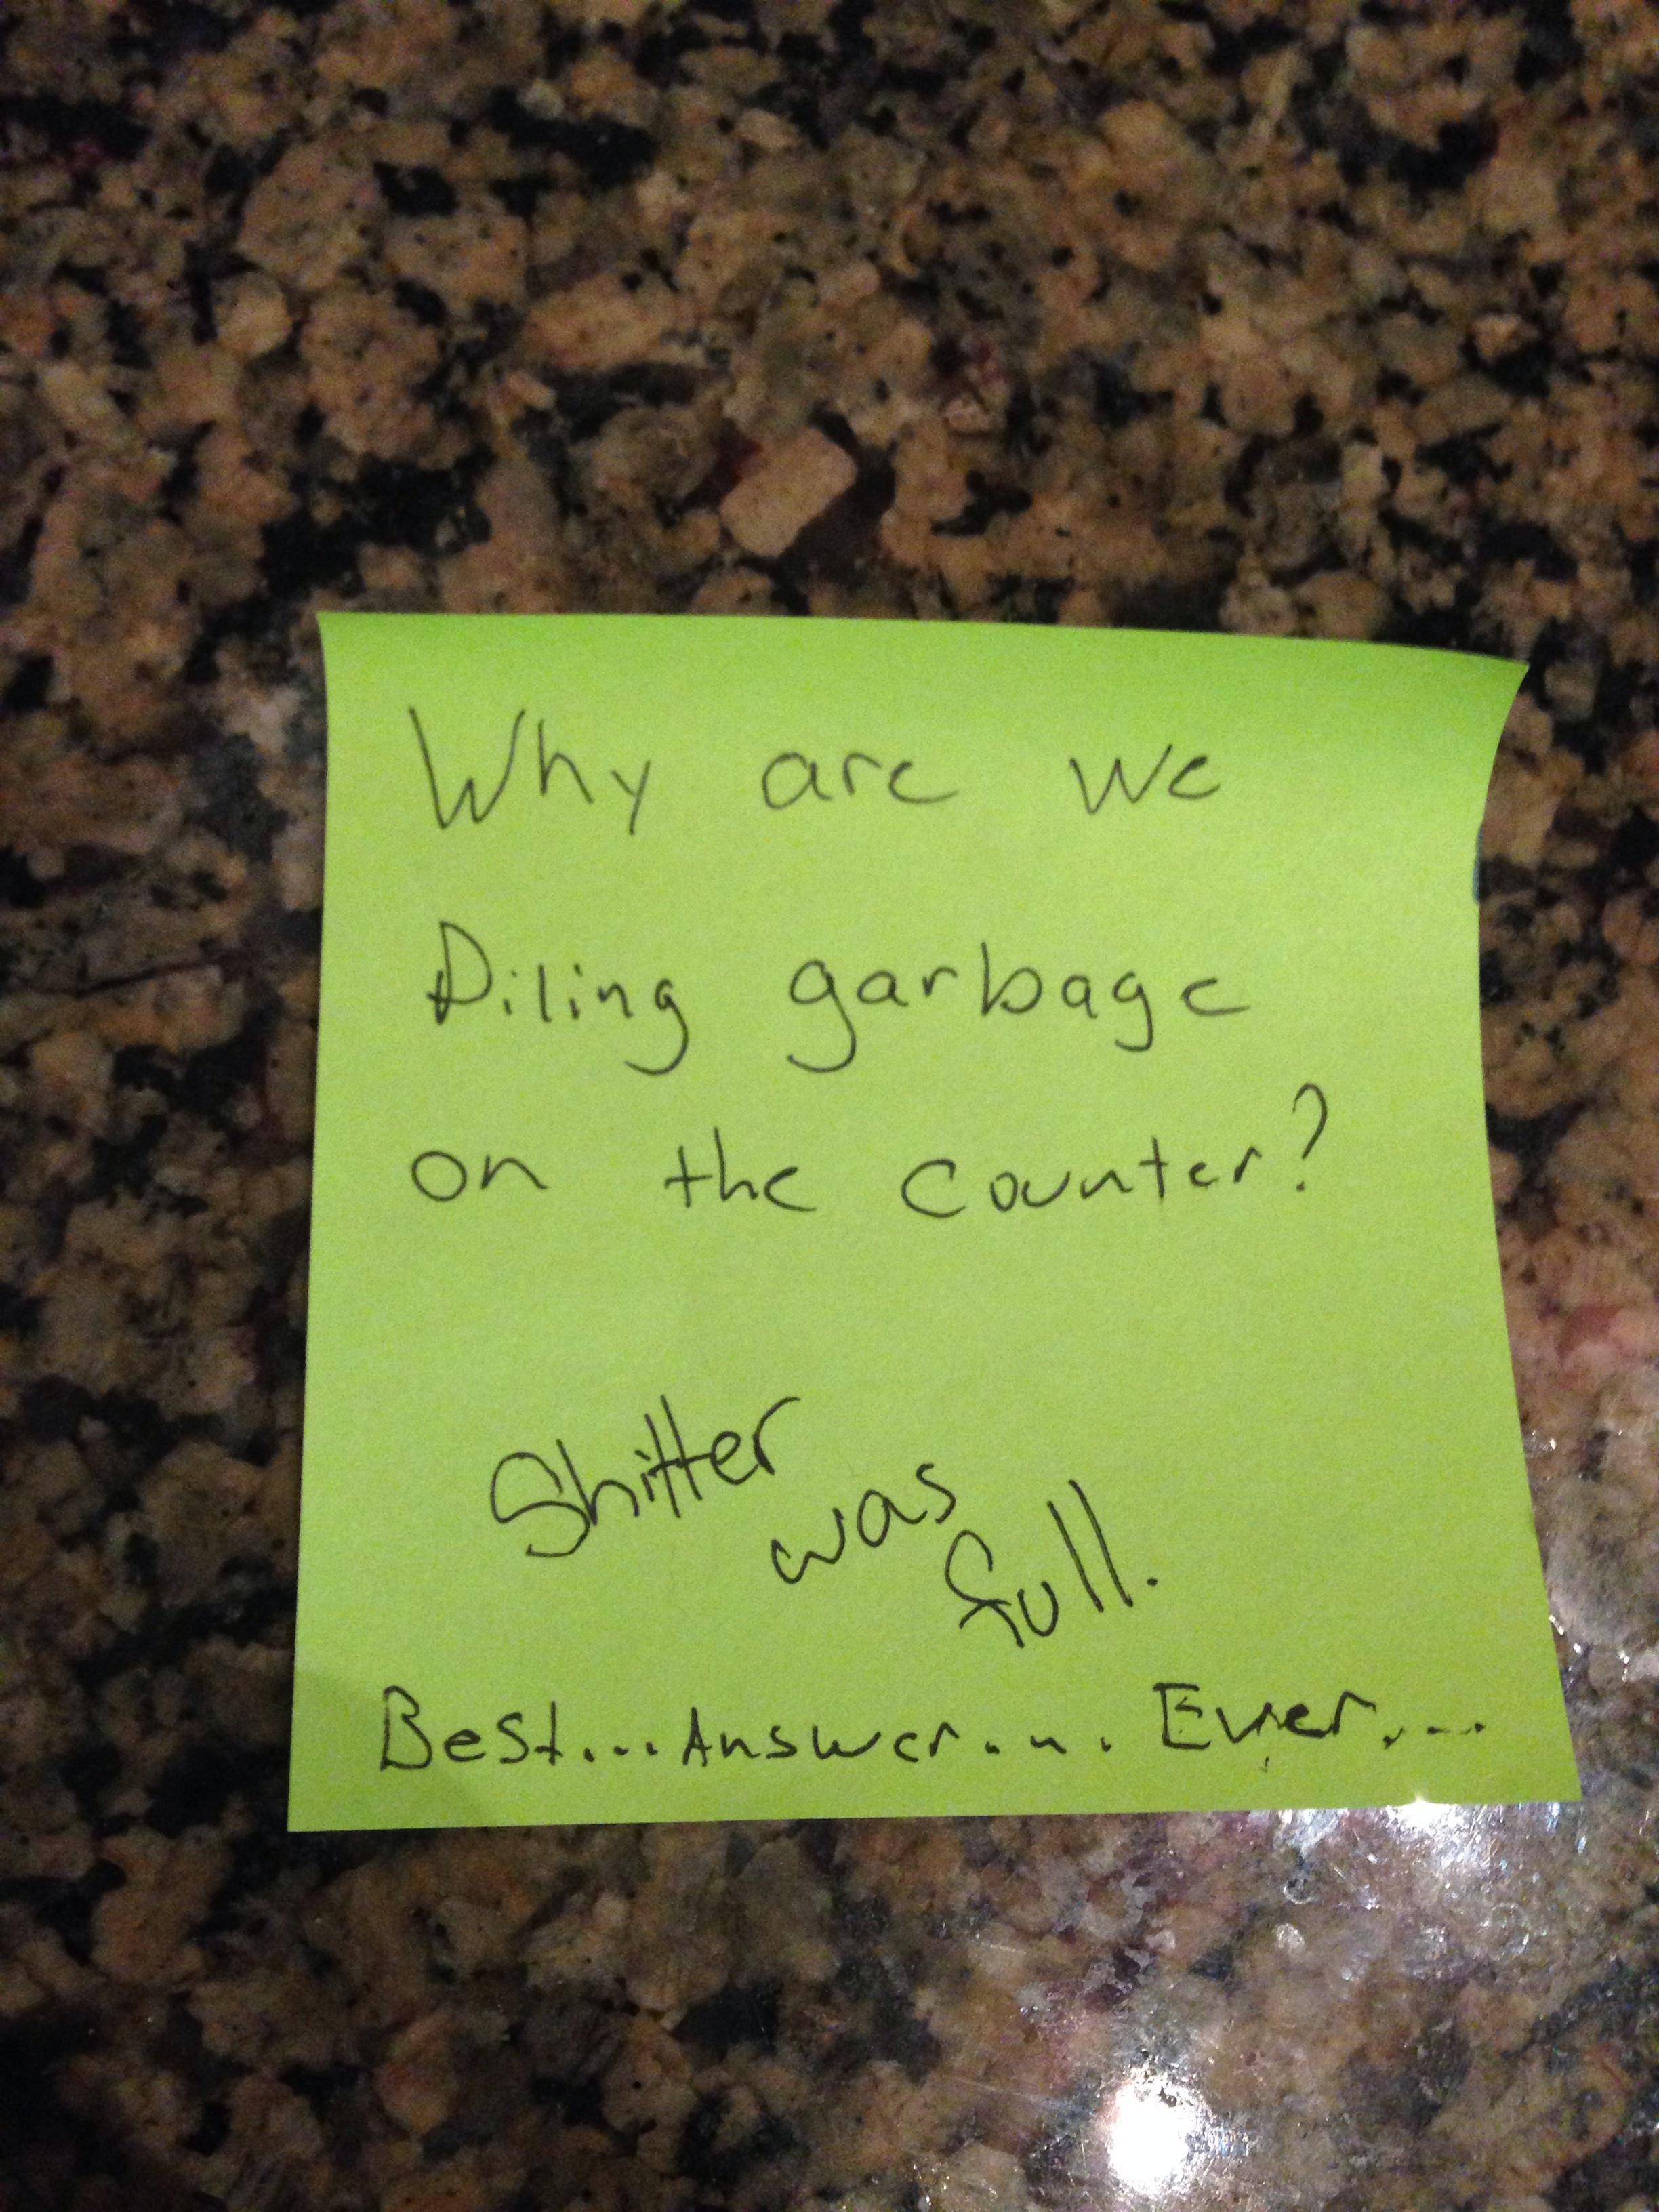 Why are we
Piling garbage
on the counter?
Shitter
was
full.
Best...Answer....Ever....